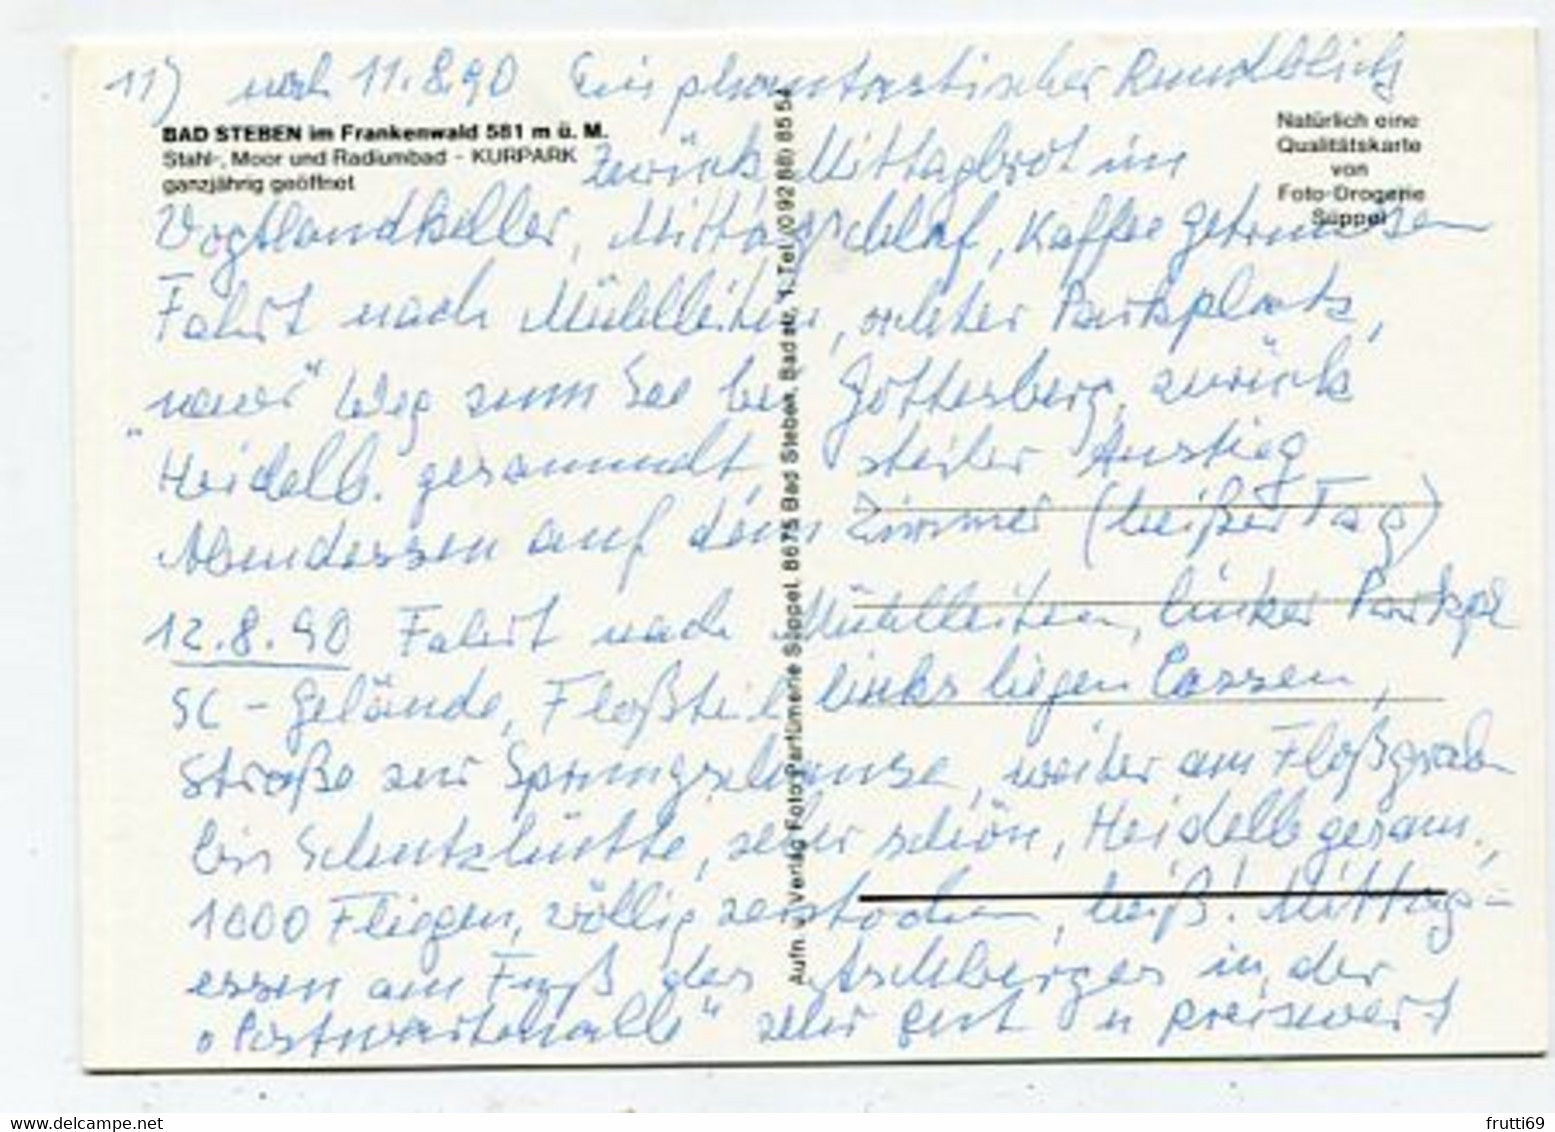 11) noch 11.8.90 Ein phantastischer Rundblick
BAD STEBEN im Frankenwald 581 m ü. M.
Stahl-, Moor und Radiumbad - KURPARK
ganzjährig geöffnet
Natürlich eine
Qualitätskarte
von
Foto-Drogerie
Süppel
zurück Mittagbrot im
Vogtlandkeller, Mittagschlaf, Kaffee getrunken
Fahrt nach Mühlleiten, rechter Parkplatz,
"neuer" Weg zum See bei Gottesberg, zurück
Heidelb. gesammelt, steiler Anstieg
Abendessen auf dem Zimmer (heißer Tag)
12.8.90 Fahrt nach Mühlleiten, linker Parkpl
SC-Gelände, Floßteil links liegen lassen,
Straße zur Sprungschanze, weiter am Floßgraben
bis Schutzhütte, sehr schön, Heidelb gesam.,
1000 Fliegen, völlig zerstochen, heiß! Mittag-
essen am Fuß des Aschberges in der
"Postwartehalle" sehr gut u preiswert
Aufn. u. Verlag Foto Parfümerie Süppel, 8675 Bad Steben, Badstr. 1, Tel. (09288) 8554
frutti69